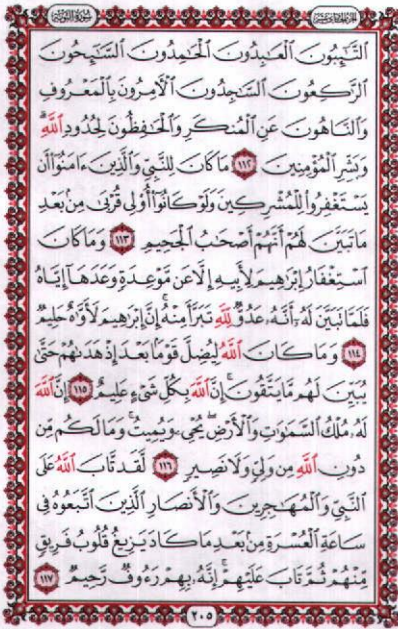 سورة التوبة
التَّـٰٓئِبُونَ ٱلْعَـٰبِدُونَ ٱلْحَـٰمِدُونَ ٱلسَّـٰٓئِحُونَ
ٱلرَّٰكِعُونَ ٱلسَّـٰجِدُونَ ٱلْـَٔامِرُونَ بِٱلْمَعْرُوفِ
وَٱلنَّاهُونَ عَنِ ٱلْمُنكَرِ وَٱلْحَـٰفِظُونَ لِحُدُودِ ٱللَّهِ ۗ
وَبَشِّرِ ٱلْمُؤْمِنِينَ ١١٢ مَا كَانَ لِلنَّبِىِّ وَٱلَّذِينَ ءَامَنُوٓا۟ أَن
يَسْتَغْفِرُوا۟ لِلْمُشْرِكِينَ وَلَوْ كَانُوٓا۟ أُو۟لِى قُرْبَىٰ مِنۢ بَعْدِ
مَا تَبَيَّنَ لَهُمْ أَنَّهُمْ أَصْحَـٰبُ ٱلْجَحِيمِ ١١٣ وَمَا كَانَ
ٱسْتِغْفَارُ إِبْرَٰهِيمَ لِأَبِيهِ إِلَّا عَن مَّوْعِدَةٍ وَعَدَهَآ إِيَّاهُ
فَلَمَّا تَبَيَّنَ لَهُۥٓ أَنَّهُۥ عَدُوٌّ لِّلَّهِ تَبَرَّأَ مِنْهُ ۚ إِنَّ إِبْرَٰهِيمَ لَأَوَّٰهٌ حَلِيمٌ
١١٤ وَمَا كَانَ ٱللَّهُ لِيُضِلَّ قَوْمًۢا بَعْدَ إِذْ هَدَىٰهُمْ حَتَّىٰ
يُبَيِّنَ لَهُم مَّا يَتَّقُونَ ۚ إِنَّ ٱللَّهَ بِكُلِّ شَىْءٍ عَلِيمٌ ١١٥ إِنَّ ٱللَّهَ
لَهُۥ مُلْكُ ٱلسَّمَـٰوَٰتِ وَٱلْأَرْضِ ۖ يُحْىِۦ وَيُمِيتُ ۚ وَمَا لَكُم مِّن
دُونِ ٱللَّهِ مِن وَلِىٍّ وَلَا نَصِيرٍ ١١٦ لَّقَد تَّابَ ٱللَّهُ عَلَى
ٱلنَّبِىِّ وَٱلْمُهَـٰجِرِينَ وَٱلْأَنصَارِ ٱلَّذِينَ ٱتَّبَعُوهُ فِى
سَاعَةِ ٱلْعُسْرَةِ مِنۢ بَعْدِ مَا كَادَ يَزِيغُ قُلُوبُ فَرِيقٍ
مِّنْهُمْ ثُمَّ تَابَ عَلَيْهِمْ ۚ إِنَّهُۥ بِهِمْ رَءُوفٌ رَّحِيمٌ ١١٧
٢٠٥